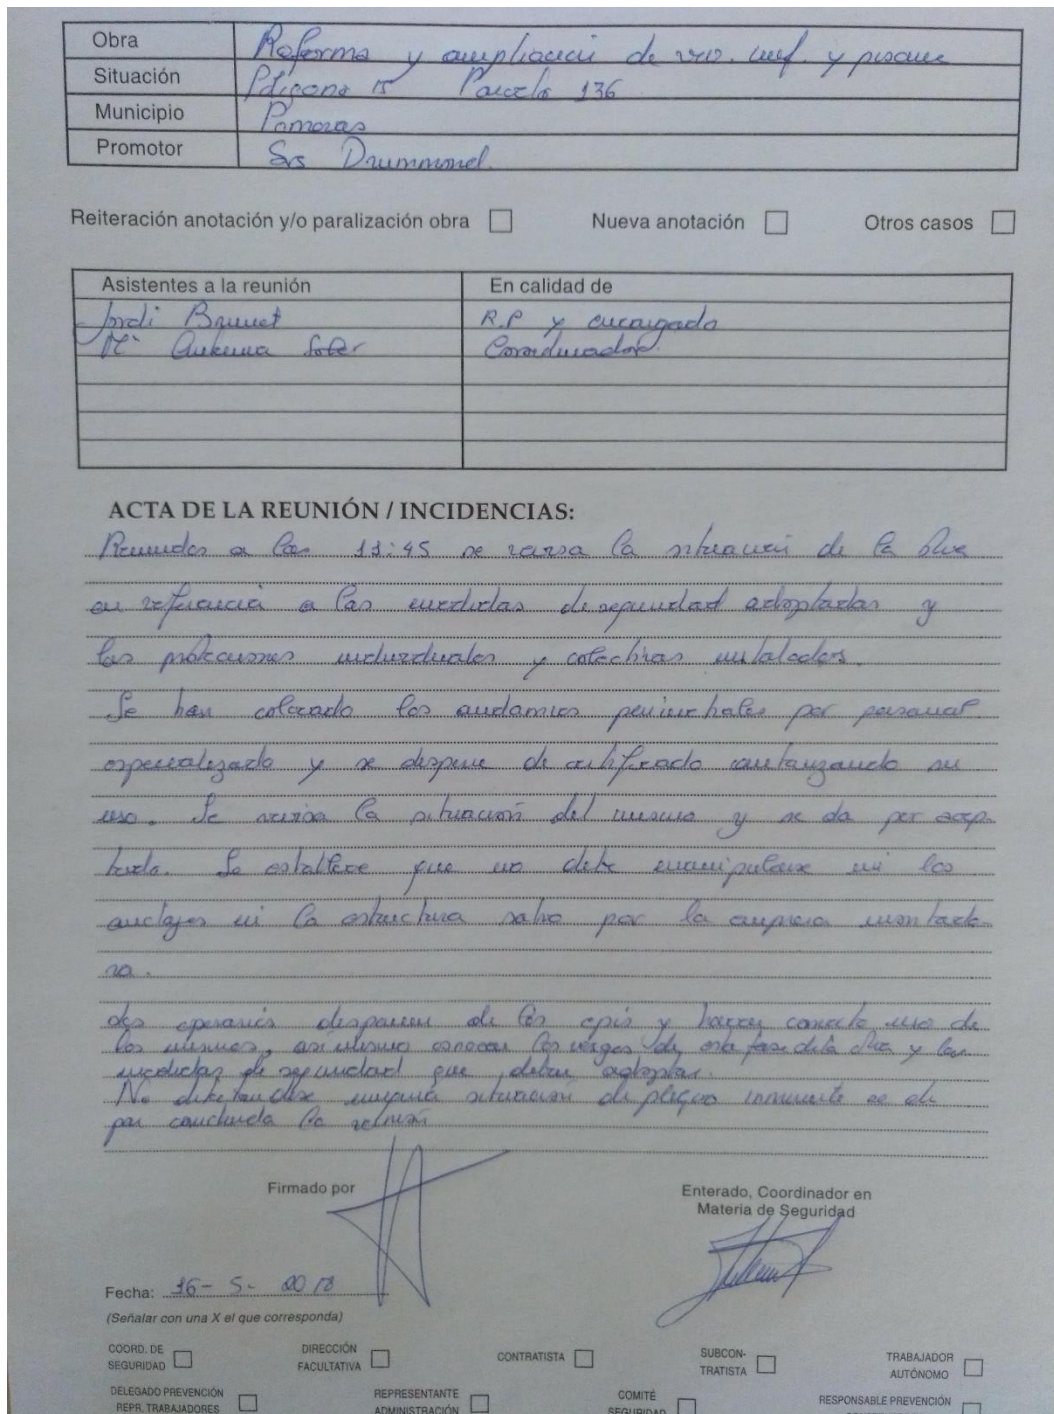 Obra Reforma y ampliación de viv. unif. y piscina
Situación Polígono 15 Parcela 136
Municipio Pomeras
Promotor Srs Drummond.
Reiteración anotación y/o paralización obra Nueva anotación Otros casos
Asistentes a la reunión En calidad de
Jordi Brunet R.P y encargado
Mª Soler Coordinadora.
ACTA DE LA REUNIÓN / INCIDENCIAS:
Reunidos a las 11:45 se revisa la situación de la obra
en referencia a las medidas de seguridad adoptadas y
las protecciones individuales y colectivas instaladas.
Se han colocado los andamios perimetrales por personal
especializado y se dispone de certificado autorizando su
uso. Se revisa la situación del mismo y se da por acep-
tado. Se establece que no debe manipularse ni los
anclajes ni la estructura salvo por la empresa montado-
ra.
Los operarios disponen de los epis y hacen correcto uso de
los mismos, así mismo conocen los riesgos de esta fase de la obra y las
medidas de seguridad que deben adoptar.
No detectándose ninguna situación de peligro inminente se da
por concluida la reunión
Firmado por
Enterado, Coordinador en
Materia de Seguridad
Fecha: 16-5-2018
(Señalar con una X el que corresponda)
COORD. DE SEGURIDAD
DIRECCIÓN FACULTATIVA
CONTRATISTA
SUBCON-
TRATISTA
TRABAJADOR AUTÓNOMO
DELEGADO PREVENCIÓN
REPR. TRABAJADORES
REPRESENTANTE
ADMINISTRACIÓN
COMITÉ
SEGURIDAD
RESPONSABLE PREVENCIÓN